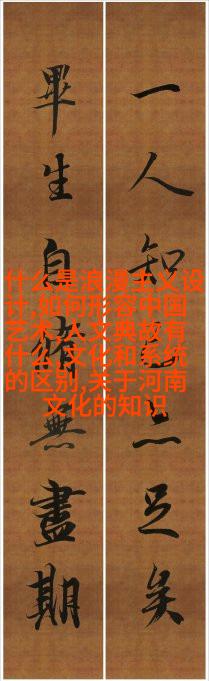 一人知己亦足矣
畢生自脩無盡期
什么是浪漫主义设
计,如何形容中国
艺术,人文典故有
什么,文化和系统
的区别,关于河南
文化的知识